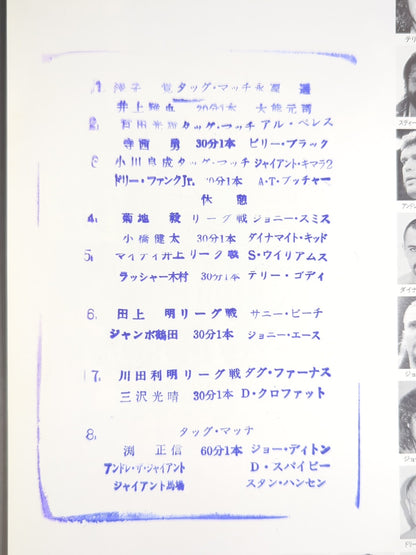 1. 渕 タッグ・マッチ 永源 遙
井上 20分1本 大熊元司
2. 百田光雄 タッグ・マッチ アル・ペレス
寺西 勇 30分1本 ビリー・ブラック
6 小川良成 タッグ・マッチ ジャイアント・キマラ2
ドリー・ファンクJr. 30分1本 A・T・ブッチャー
休憩
4. 菊地 毅 リーグ戦 ジョニー・スミス
小橋健太 30分1本 ダイナマイト・キッド
5. マイティ井上 リーグ戦 S・ウイリアムス
ラッシャー木村 30分1本 テリー・ゴディ
6. 田上 明 リーグ戦 サニー・ビーチ
ジャンボ鶴田 30分1本 ジョニー・エース
7. 川田利明 リーグ戦 ダグ・ファーナス
三沢光晴 30分1本 D・クロファット
8. タッグ・マッチ
渕 正信 60分1本 ジョー・ディトン
アンドレ・ザ・ジャイアント D・スパイビー
ジャイアント馬場 スタン・ハンセン
テリ
スティー
アンドレ
ダイナ
ジョ
ジョ
ドリー